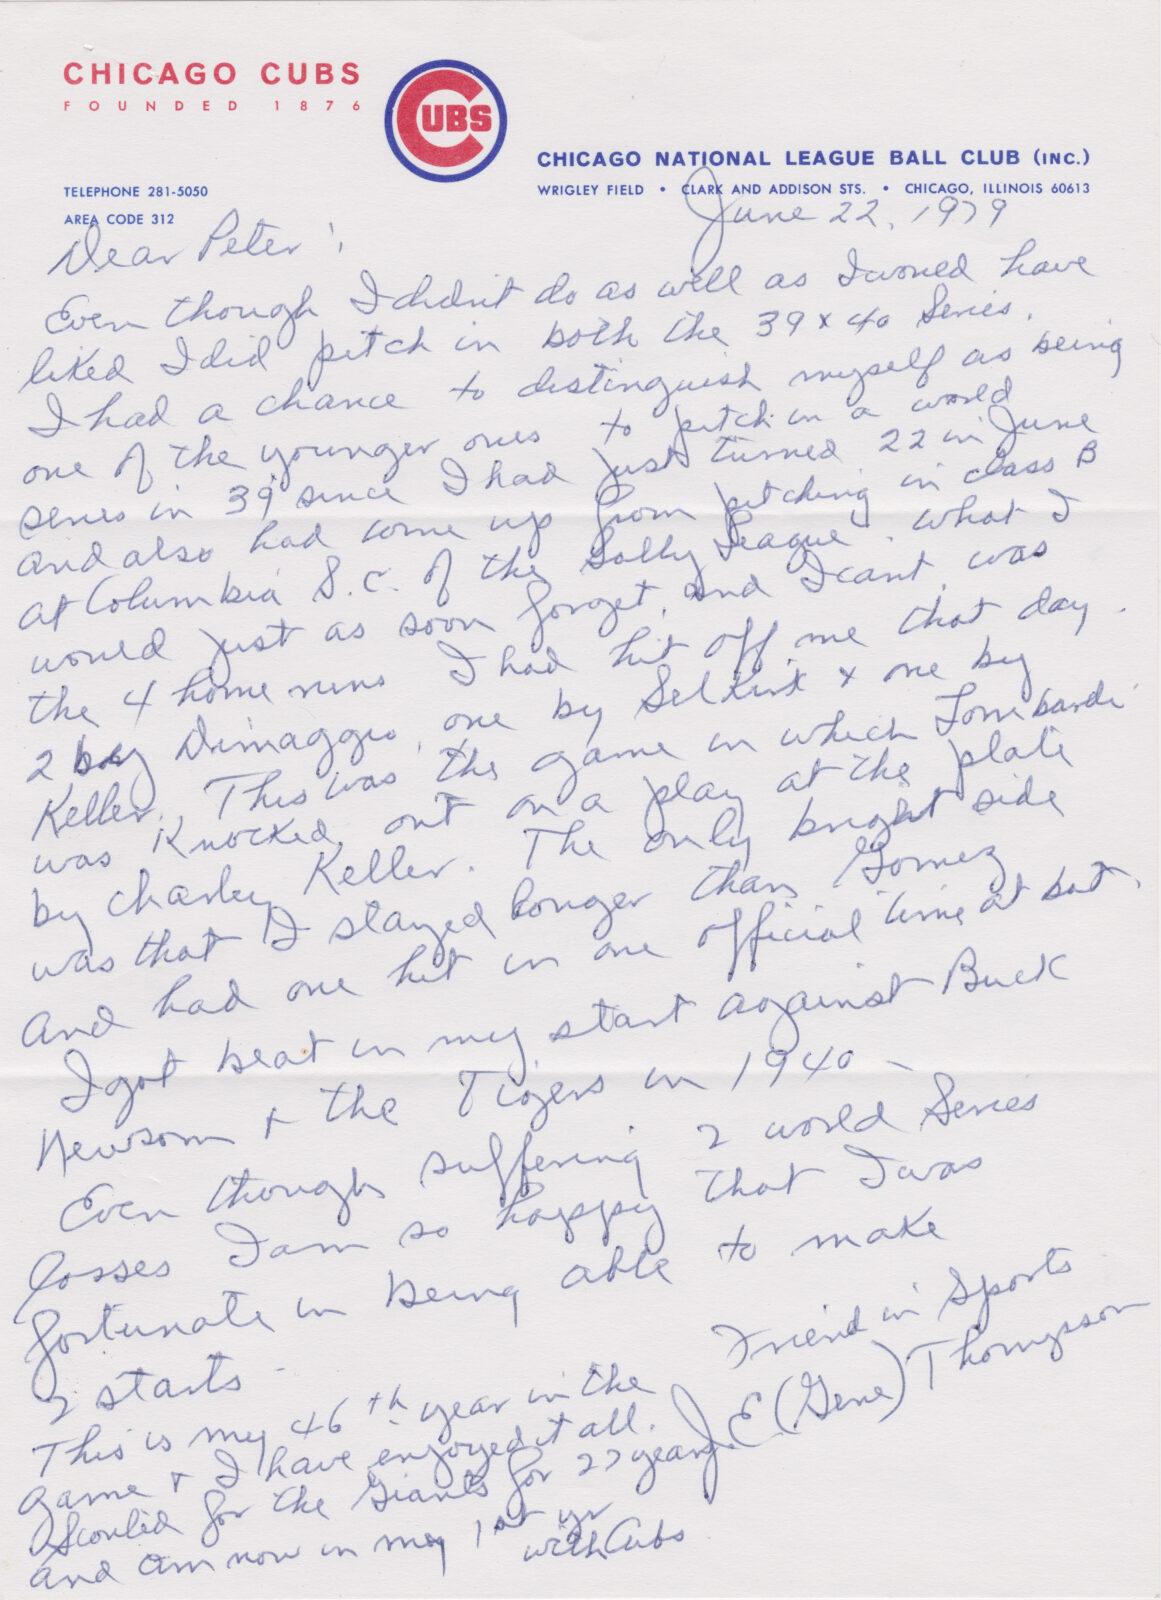 CHICAGO CUBS
FOUNDED 1876
CUBS
CHICAGO NATIONAL LEAGUE BALL CLUB (INC.)
WRIGLEY FIELD • CLARK AND ADDISON STS. • CHICAGO, ILLINOIS 60613
TELEPHONE 281-5050
AREA CODE 312
June 22, 1979
Dear Peter;
Even though I didn't do as well as I would have
liked I did pitch in both the 39 & 40 Series.
I had a chance to distinguish myself as being
one of the younger ones to pitch in a world
series in 39 since I had just turned 22 in June
and also had come up from pitching in class B
at Columbia S.C. of the Sally League. What I
would just as soon forget, and I cant, was
the 4 home runs I had hit off me that day.
2 by Dimaggio, one by Selkirk & one by
Keller. This was the game in which Lombardi
was Knocked out on a play at the plate
by Charley Keller. The only bright side
was that I stayed longer than Gomez
and had one hit in one official time at bat.
I got beat in my start against Buck
Newsom & the Tigers in 1940 -
Even though suffering 2 world Series
losses I am so happy that I was
fortunate in being able to make
2 starts
Friend in Sports
J. E (Gene) Thompson
This is my 46th year in the
game & I have enjoyed it all.
Scouted for the Giants for 27 years
and am now in my 1st yr
with Cubs